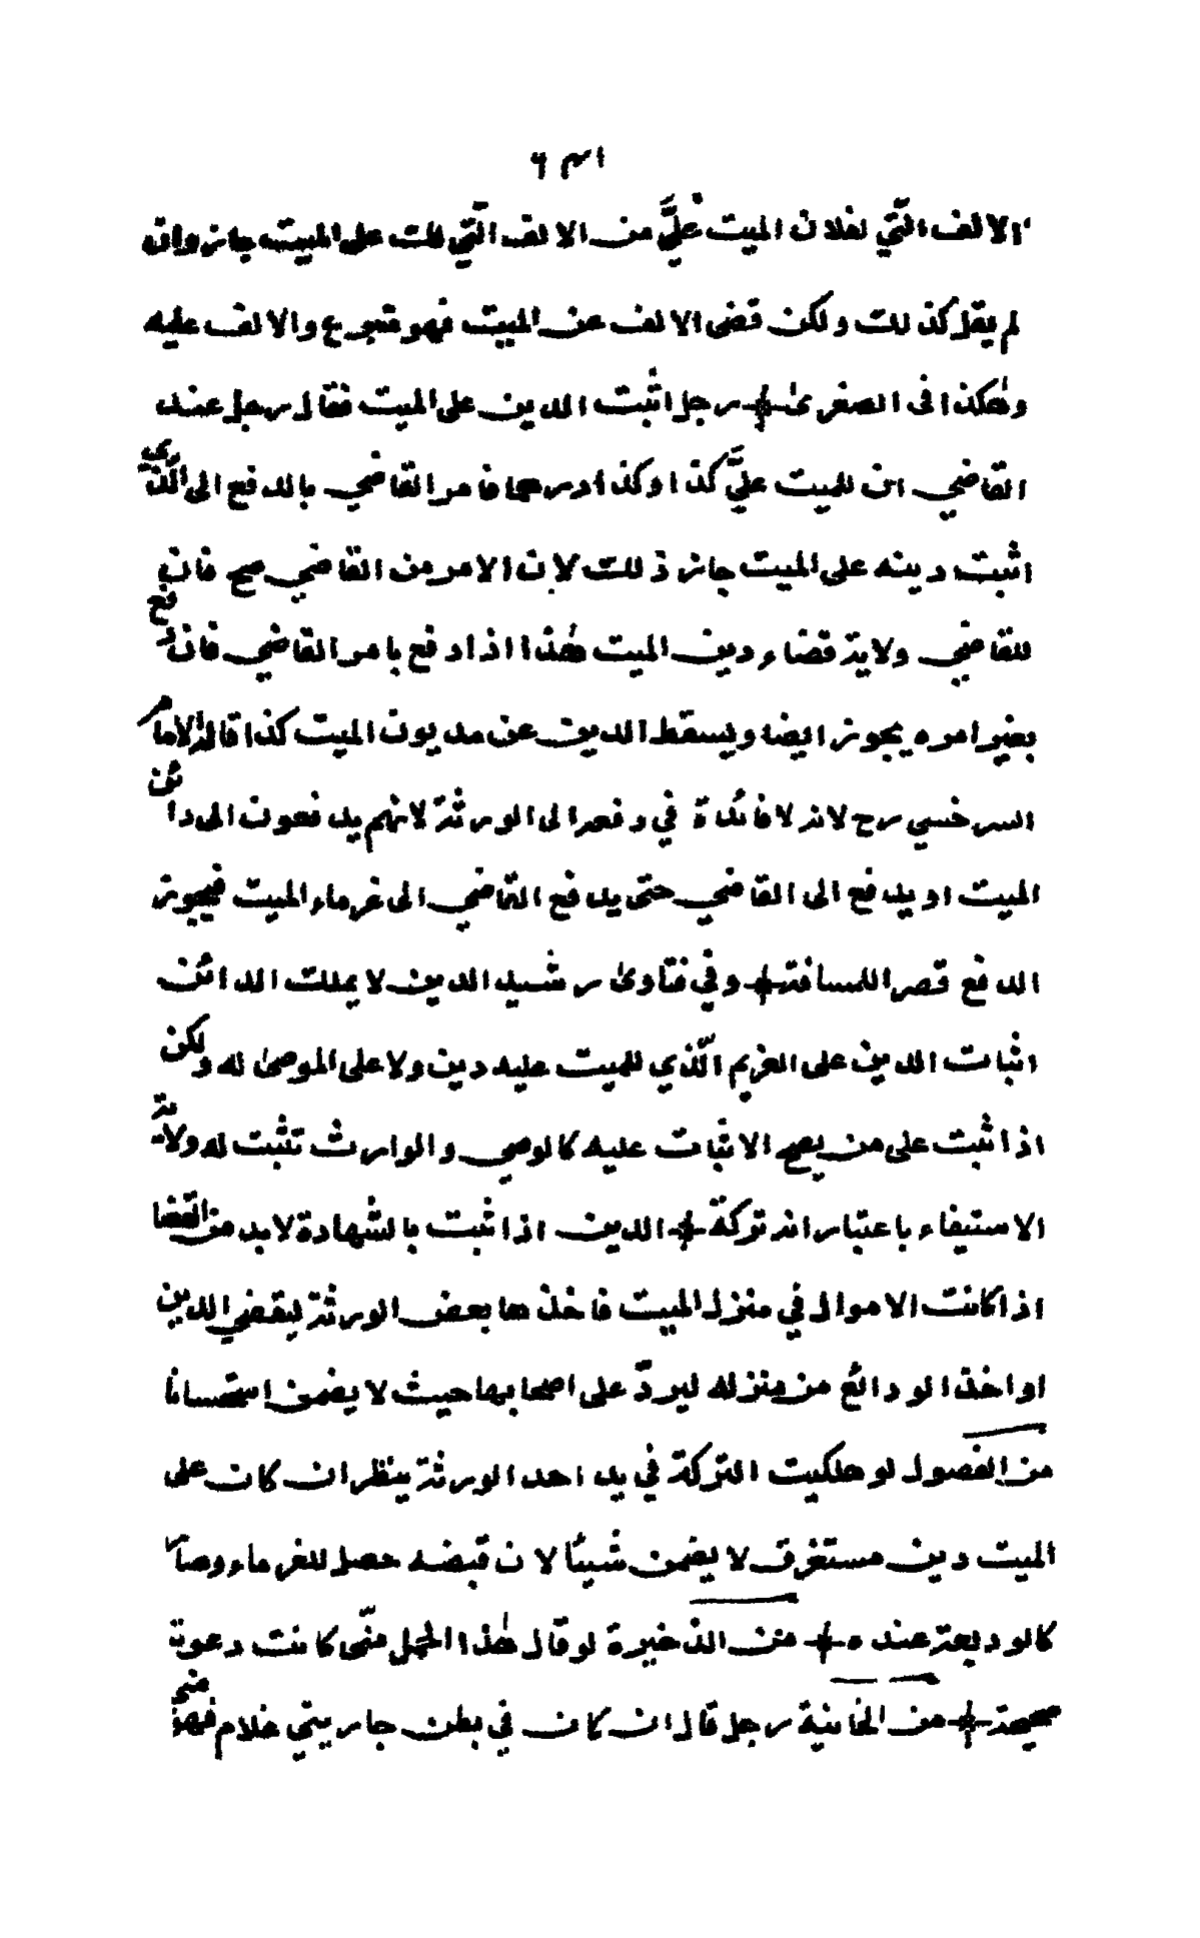 الالف التي لفلان الميت عليَّ من الالف التي للت على الميت جائز وان
لم يقل كذلك ولكن قضى الالف عن الميت فهو متبرع والالف عليه
وهكذا فى الصغرى + رجل اثبت الدين على الميت فقال رجل عند
القاضي ان للميت عليَّ كذا وكذا درهما فامر القاضي بالدفع الى الذي
اثبت دينه على الميت جاز ذلك لان الامر من القاضي صح فان
للقاضي ولاية قضاء دين الميت هذا اذا دفع بامر القاضي فان دفع
بغير امره يجوز ايضا ويسقط الدين عن مديون الميت كذا قاله الامام
السرخسي رح لانه لا فائدة في دفعه الى الورثة لانهم يدفعون الى دائن
الميت او يدفع الى القاضي حتى يدفع القاضي الى غرماء الميت فيجوز
الدفع قصرا للمسافة + وفي فتاوى رشيد الدين لا يملك الدائن
اثبات الدين على الغريم الّذي للميت عليه دين ولا على الموصى له ولكن
اذا ثبت على من يصح الاثبات عليه كالوصي والوارث تثبت له ولاية
الاستيفاء باعتبار انه تركة + الدين اذا ثبت بالشهادة لا بد من القضا
اذا كانت الاموال في منزل الميت فاخذها بعض الورثة ليقضي الدين
او اخذ الودائع من منزله ليردّ على اصحابها حيث لا يضمن استحسانا
من الفصول لو هلكت التركة في يد احد الورثة ينظر ان كان على
الميت دين مستغرق لا يضمن شيئا لان قبضه حصل للغرماء وصار
كالوديعة عنده + من الذخيرة لو قال هذا الحمل منّى كانت دعوة
صحيحة + من الخانية رجل قال ان كان في بطن جاريتي غلام فهو منى